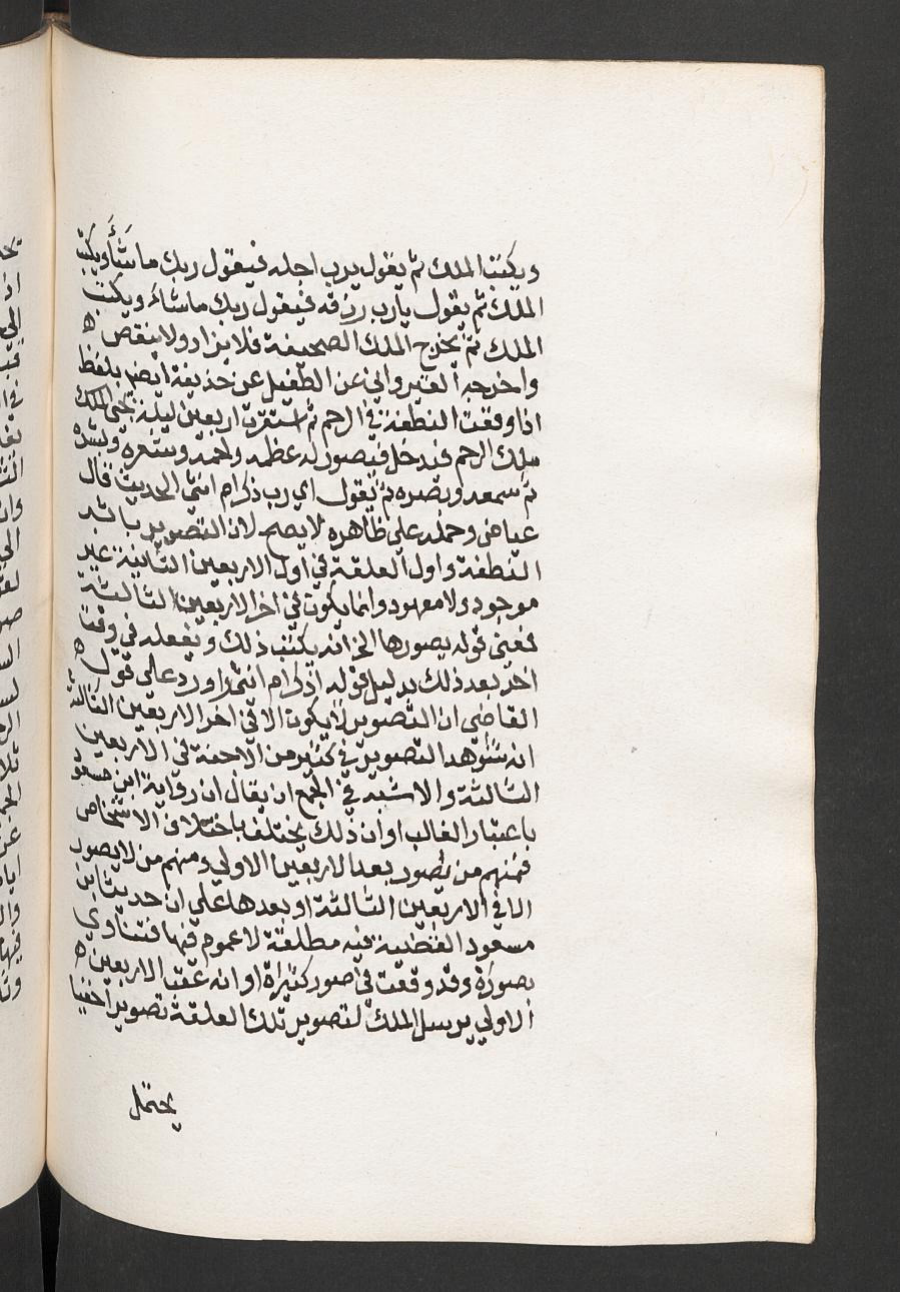 ويكتب الملك ثم يقول يرب اجله فيقول ربك ما شاء ويكتب
الملك ثم يقول يارب رزقه فيقول ربك ماشاء ويكتب
الملك ثم يخرج الملك الصحيفة فلا يزاد ولا ينقص ه
واخرجه الفيرواني عن الطفيل عن حذيفة ايضا بلفظ
اذا وقعت النطفة في الرحم ثم استقرت اربعين ليلة يجئ الملك
ملك الرحم فيدخل فيصور له عظمه ولحمه وشعره وبشره
ثم سمعه وبصره ثم يقول اي رب ذكرام انثي الحديث قال
عياض وحمله علي ظاهره لا يصح لان التصوير باثر
النطفة واول العلقة في اول الاربعين الثانية غير
موجود ولا معهود وانما يكون في اخر الاربعين الثالثة
فمعني قوله يصورها الخ انه يكتب ذلك ويفعله في وقت
اخر بعد ذلك بدليل قوله اذكرام انثي واورد علي قول ه
القاضي ان التصوير لا يكون الا في اخر الاربعين الثالثة
انه شوهد التصوير في كثير من الاجنة في الاربعين
الثالثة والاشبه في الجمع ان يقال ان رواية ابن مسعود
باعتبار الغالب او ان ذلك يختلف باختلاف الاشخاص
فمنهم من يصور بعد الاربعين الاولي ومنهم من لا يصور
الا في الاربعين الثالثة او بعدها علي ان حديث ابن
مسعود القضية فيه مطلقة لا عموم فيها فتتاوي
بصورة وقد وقعت في صور كثيرة او انه عقب الاربعين ه
الاولي يرسل الملك لتصوير تلك العلقة تصويرا خفيا
يحتمل